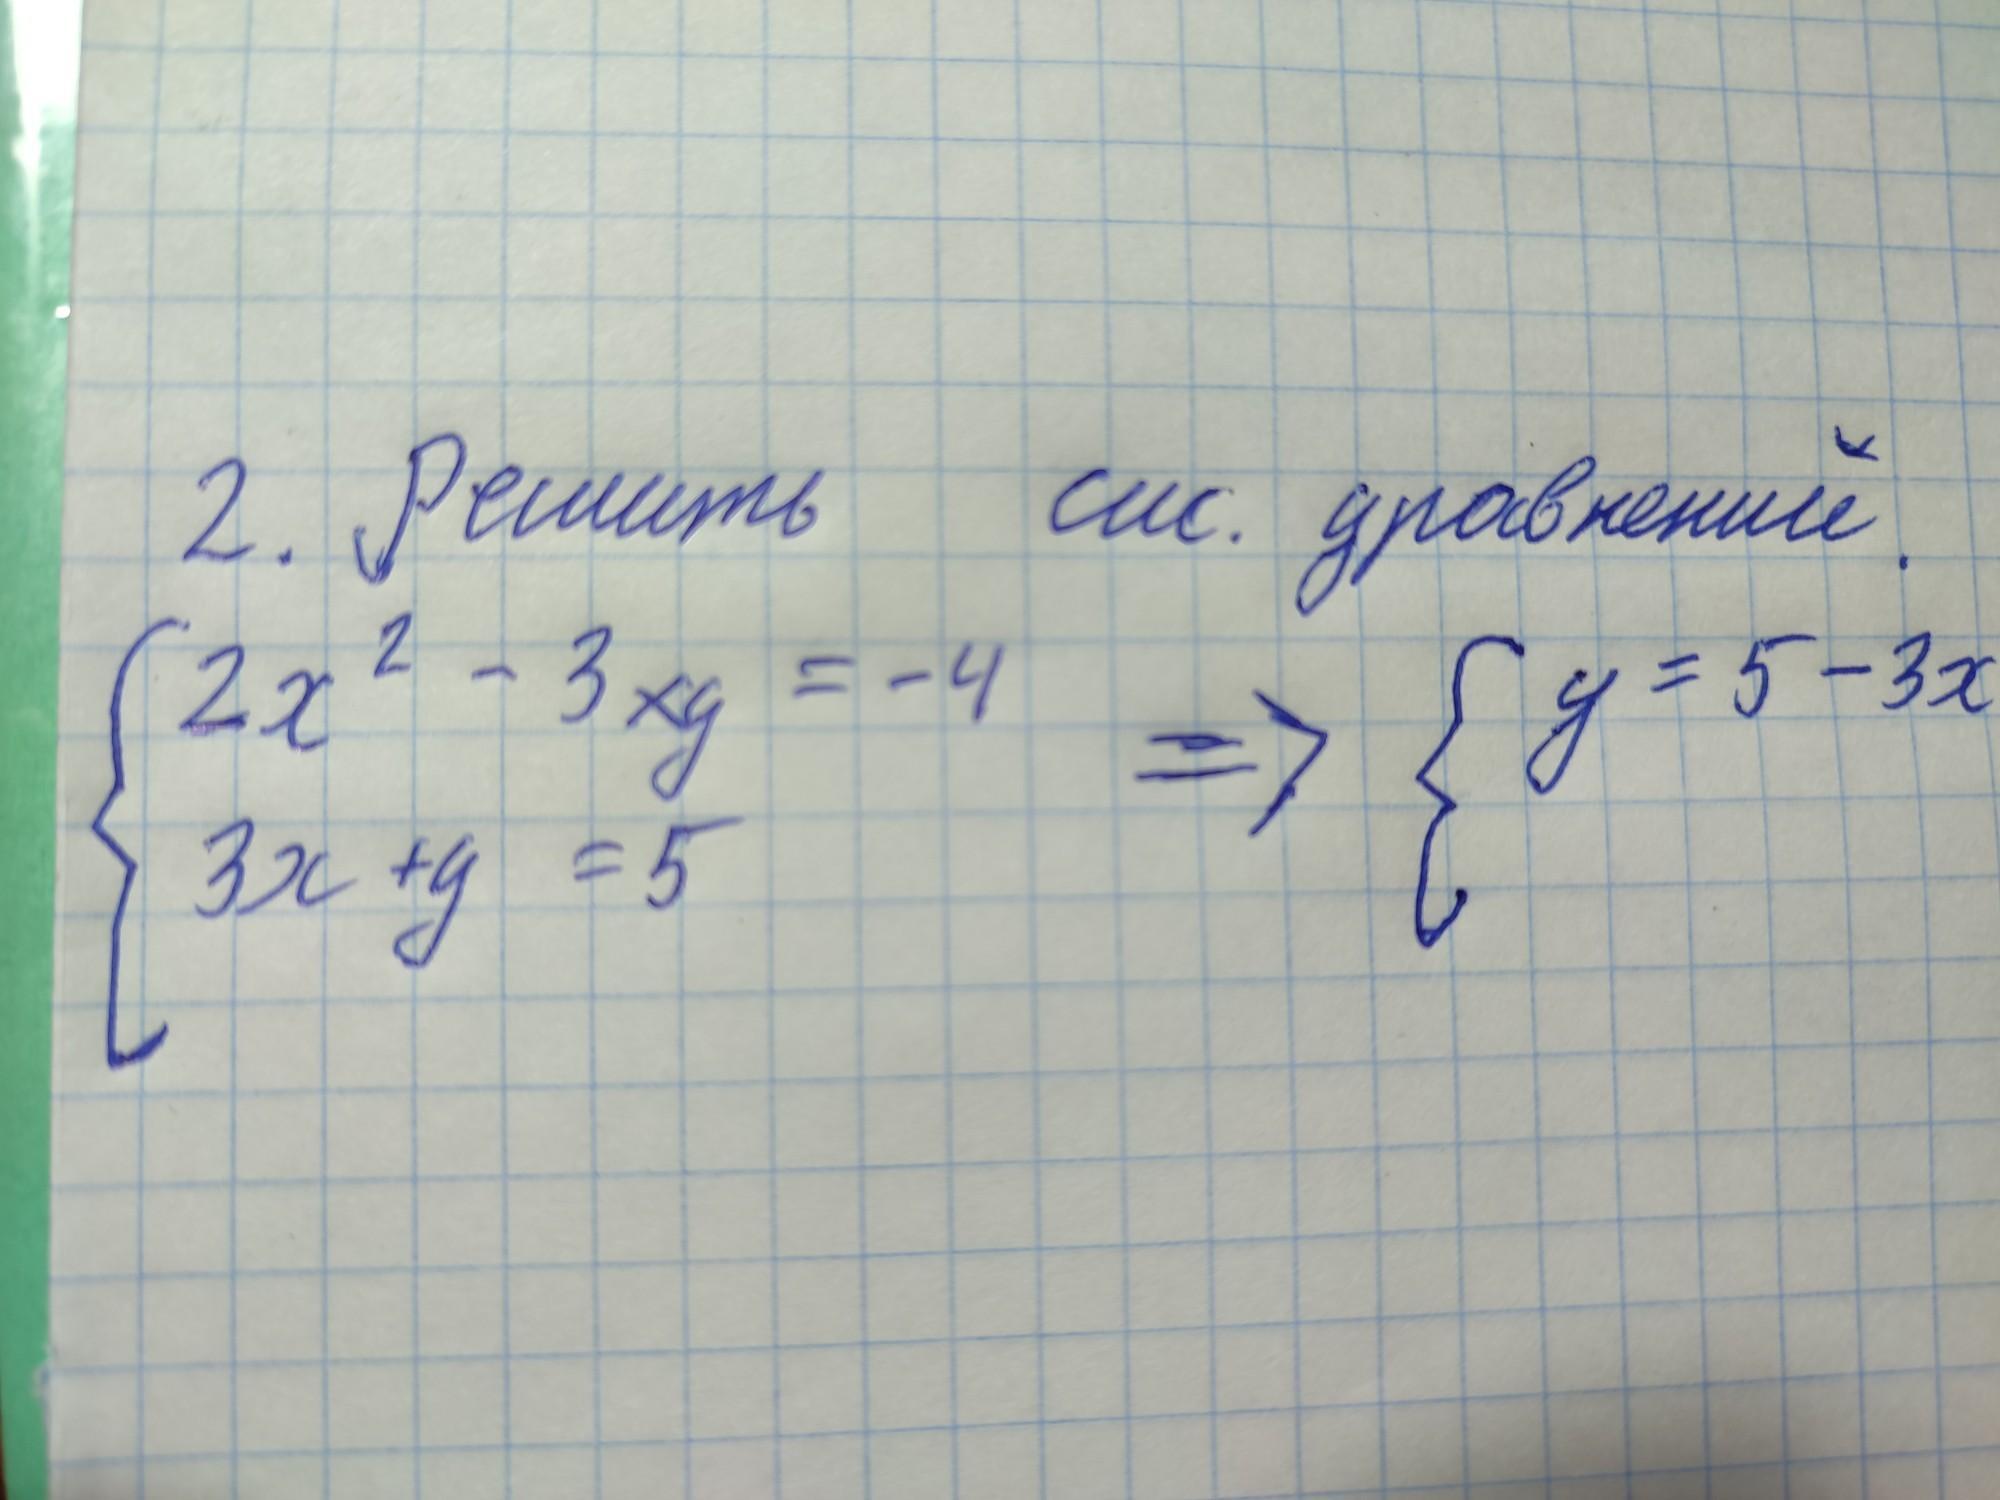 2. Решить сис. уравнений.
2x² - 3xy = -4 => { y = 5 - 3x
3x + y = 5